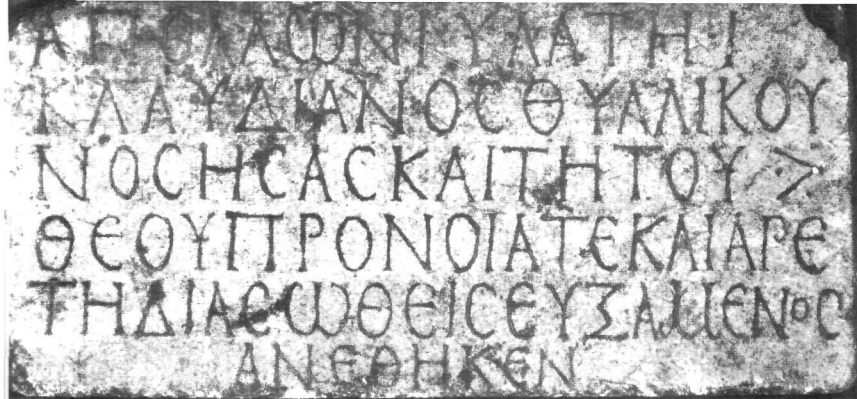 ΑΠΟΛΛΩΝΙΥΛΑΤΗΙ
ΚΛΑΥΔΙΑΝΟϹΘΥΑΛΙΚΟΥ
ΝΟϹΗϹΑϹΚΑΙΤΗΤΟΥ >
ΘΕΟΥΠΡΟΝΟΙΑΤΕΚΑΙΑΡΕ
ΤΗΔΙΑϹΩΘΕΙϹΕΥΞΑΜΕΝΟϹ
ΑΝΕΘΗΚΕΝ